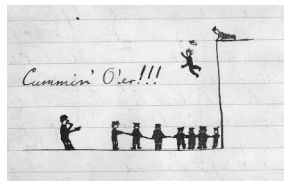 Cummin' O'er!!!